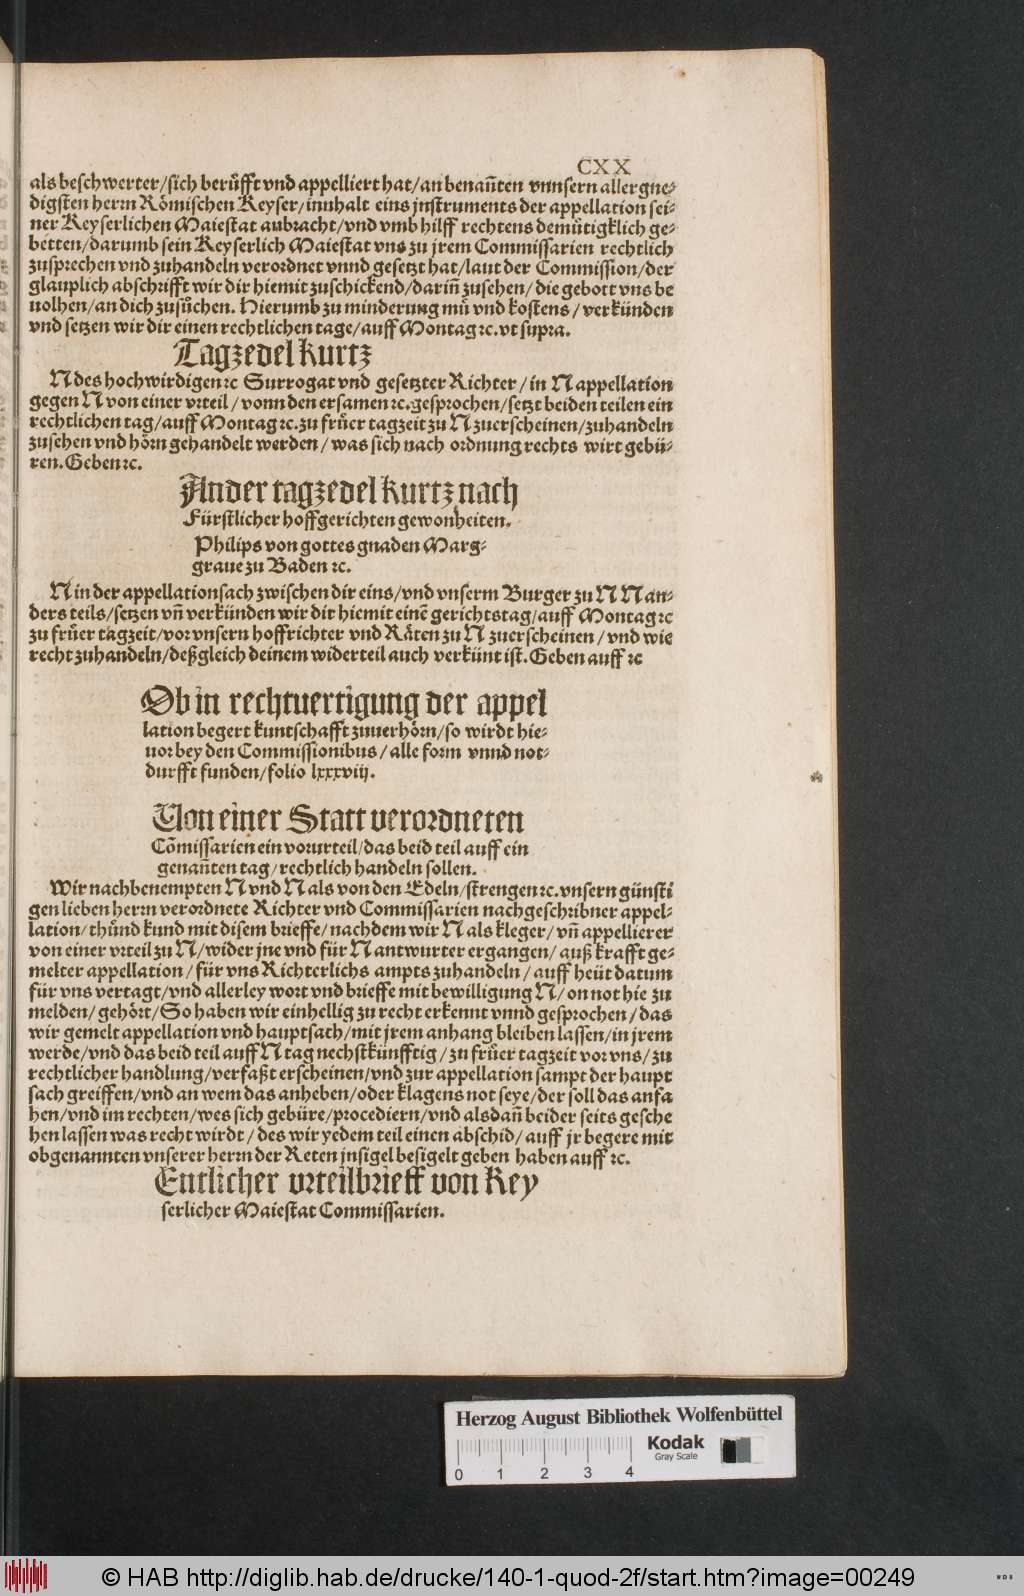 CXX
als beschwerter/sich berůfft vnd appelliert hat/an benañten vnnsern allergne⸗
digsten herrn Römischen Keyser/innhalt eins jnstruments der appellation sei⸗
ner Keyserlichen Maiestat anbracht/vnd vmb hilff rechtens demütigklich ge⸗
betten/darumb sein Keyserlich Maiestat vns zu jrem Commissarien rechtlich
zusprechen vnd zuhandeln verordnet vnnd gesetzt hat/laut der Commission/der
glauplich abschrifft wir dir hiemit zuschickend/dariñ zusehen/die gebott vns be
uolhen/an dich zusůchen. Hierumb zu minderung mů vnd kostens/verkünden
vnd setzen wir dir einen rechtlichen tage/auff Montag ⁊c. vt supra.
Tagzedel kurtz
N des hochwirdigen ⁊c Surrogat vnd gesetzter Richter/in N appellation
gegen N von einer vrteil/vonn den ersamen ⁊c. gesprochen/setzt beiden teilen ein
rechtlichen tag/auff Montag ⁊c. zu frůer tagzeit zu N zuerscheinen/zuhandeln
zusehen vnd hörn gehandelt werden/was sich nach ordnung rechts wirt gebü⸗
ren. Geben ⁊c.
Ander tagzedel kurtz nach
Fürstlicher hoffgerichten gewonheiten.
Philips von gottes gnaden Marg⸗
graue zu Baden ⁊c.
N in der appellationsach zwischen dir eins/vnd vnserm Burger zu N N an⸗
ders teils/setzen vñ verkünden wir dir hiemit einē gerichtstag/auff Montag ⁊c
zu frůer tagzeit/vor vnsern hoffrichter vnd Räten zu N zuerscheinen/vnd wie
recht zuhandeln/deßgleich deinem widerteil auch verkünt ist. Geben auff ⁊c
Ob in rechtuertigung der appel
lation begert kuntschafft zuuerhörn/so wirdt hie⸗
uor bey den Commissionibus/alle form vnnd not⸗
durfft funden/folio lxxxviij.
Von einer Statt verordneten
Cōmissarien ein vorurteil/das beid teil auff ein
genañten tag/rechtlich handeln sollen.
Wir nachbenempten N vnd N als von den Edeln/strengen ⁊c. vnsern günsti
gen lieben herrn verordnete Richter vnd Commissarien nachgeschribner appel⸗
lation/thůnd kund mit disem brieffe/nachdem wir N als kleger/vñ appellierer
von einer vrteil zu N/wider jne vnd für N antwurter ergangen/auß krafft ge⸗
melter appellation/für vns Richterlichs ampts zuhandeln/auff heüt datum
für vns vertagt/vnd allerley wort vnd brieffe mit bewilligung N/on not hie zu
melden/gehört/So haben wir einhellig zu recht erkennt vnnd gesprochen/das
wir gemelt appellation vnd hauptsach/mit jrem anhang bleiben lassen/in jrem
werde/vnd das beid teil auff N tag nechstkünfftig/zu frůer tagzeit vor vns/zu
rechtlicher handlung/verfaßt erscheinen/vnd zur appellation sampt der haupt
sach greiffen/vnd an wem das anheben/oder klagens not seye/der soll das anfa
hen/vnd im rechten/wes sich gebüre/procediern/vnd alsdañ beider seits gesche
hen lassen was recht wirdt/des wir yedem teil einen abschid/auff jr begere mit
obgenannten vnserer herrn der Reten jnsigel besigelt geben haben auff ⁊c.
Entlicher vrteilbrieff von Key
serlicher Maiestat Commissarien.
Herzog August Bibliothek Wolfenbüttel
Kodak
Gray Scale
0 1 2 3 4
© HAB http://diglib.hab.de/drucke/140-1-quod-2f/start.htm?image=00249